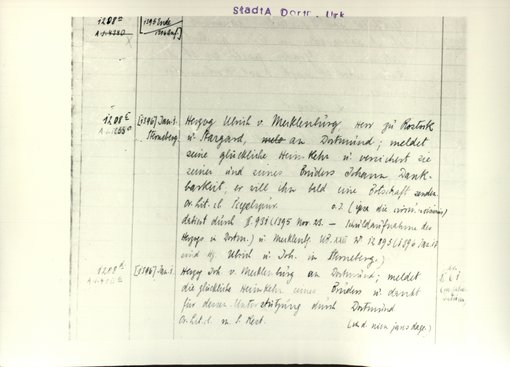 StadtA Dortm. Urk
1208 d
[1395 Ende
1208 c
[1396] Jan. 1.
Sterneberg
Herzog Ulrich v. Mecklenburg Herr zu Rostock
u. Stargard, an Dortmund; meldet
seine glückliche Heimkehr u. versichert sie
seiner und seines Bruders Johann Dank-
barkeit, er will ihn bald eine Botschaft senden
Or. Lit. cl. Siegelspur. o. J. (ipso die
datiert durch § 931 (1395 Nov. 23. – Schuldaufnahme des
Herzogs in Dortm.) u. Mecklenb. UB. XXII N° 12893 (1396
sind Ulrich u. Joh. in Sterneberg.)
1208 d
[1396] Jan. 1.
Herzog Joh. v. Mecklenburg an Dortmund; meldet
die glückliche Heimkehr seines Bruders u. dankt
für dessen Unterstützung durch Dortmund
Or. Lit. cl. m. S. Rest.